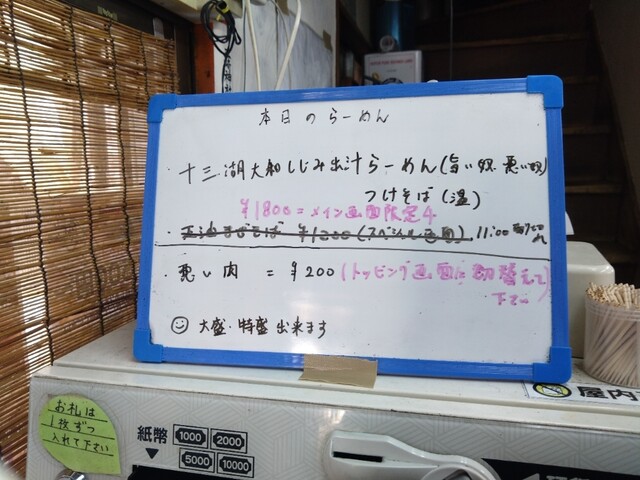 本日のらーめん
・十三湖大和しじみ出汁らーめん(旨い奴.悪い奴)
つけそば(温)
¥1800=メイン画面限定4
・正油まぜそば ¥1200(スペシャル画面) 11:00
・悪い肉 = ¥200(トッピング画面に切替えて
下さい
大盛・特盛出来ます
お札は
1枚ずつ
入れて下さい
紙幣
1000 2000
5000 10000
屋内